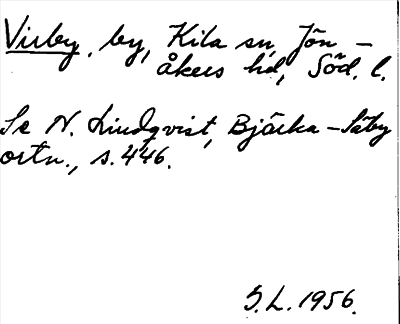 Virby, by, Kila sn, Jön-
åkers hd, Söd. l.
Se N. Lindqvist, Bjärka-Säby
ortn., s. 446.
S.L. 1956.